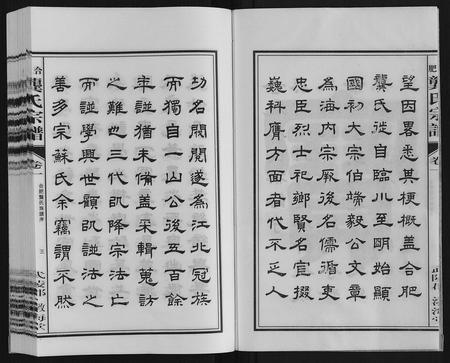 肥龔氏宗譜
卷
望因畧悉其梗概蓋合肥
龔氏徙自臨川至明始顯
國初大宗伯端毅公文章
為海内宗厥後名儒循吏
忠臣烈士祀鄉賢名宦掇
巍科膺方面者代不乏人
功名閥閱遂為江北冠族
而獨自一山公後五百餘
年譜猶未備蓋采輯蒐訪
之難也三代㠯降宗法亡
而譜學興世顧㠯譜法之
善多宗蘇氏余竊謂不然
合龔氏宗譜
卷一
三